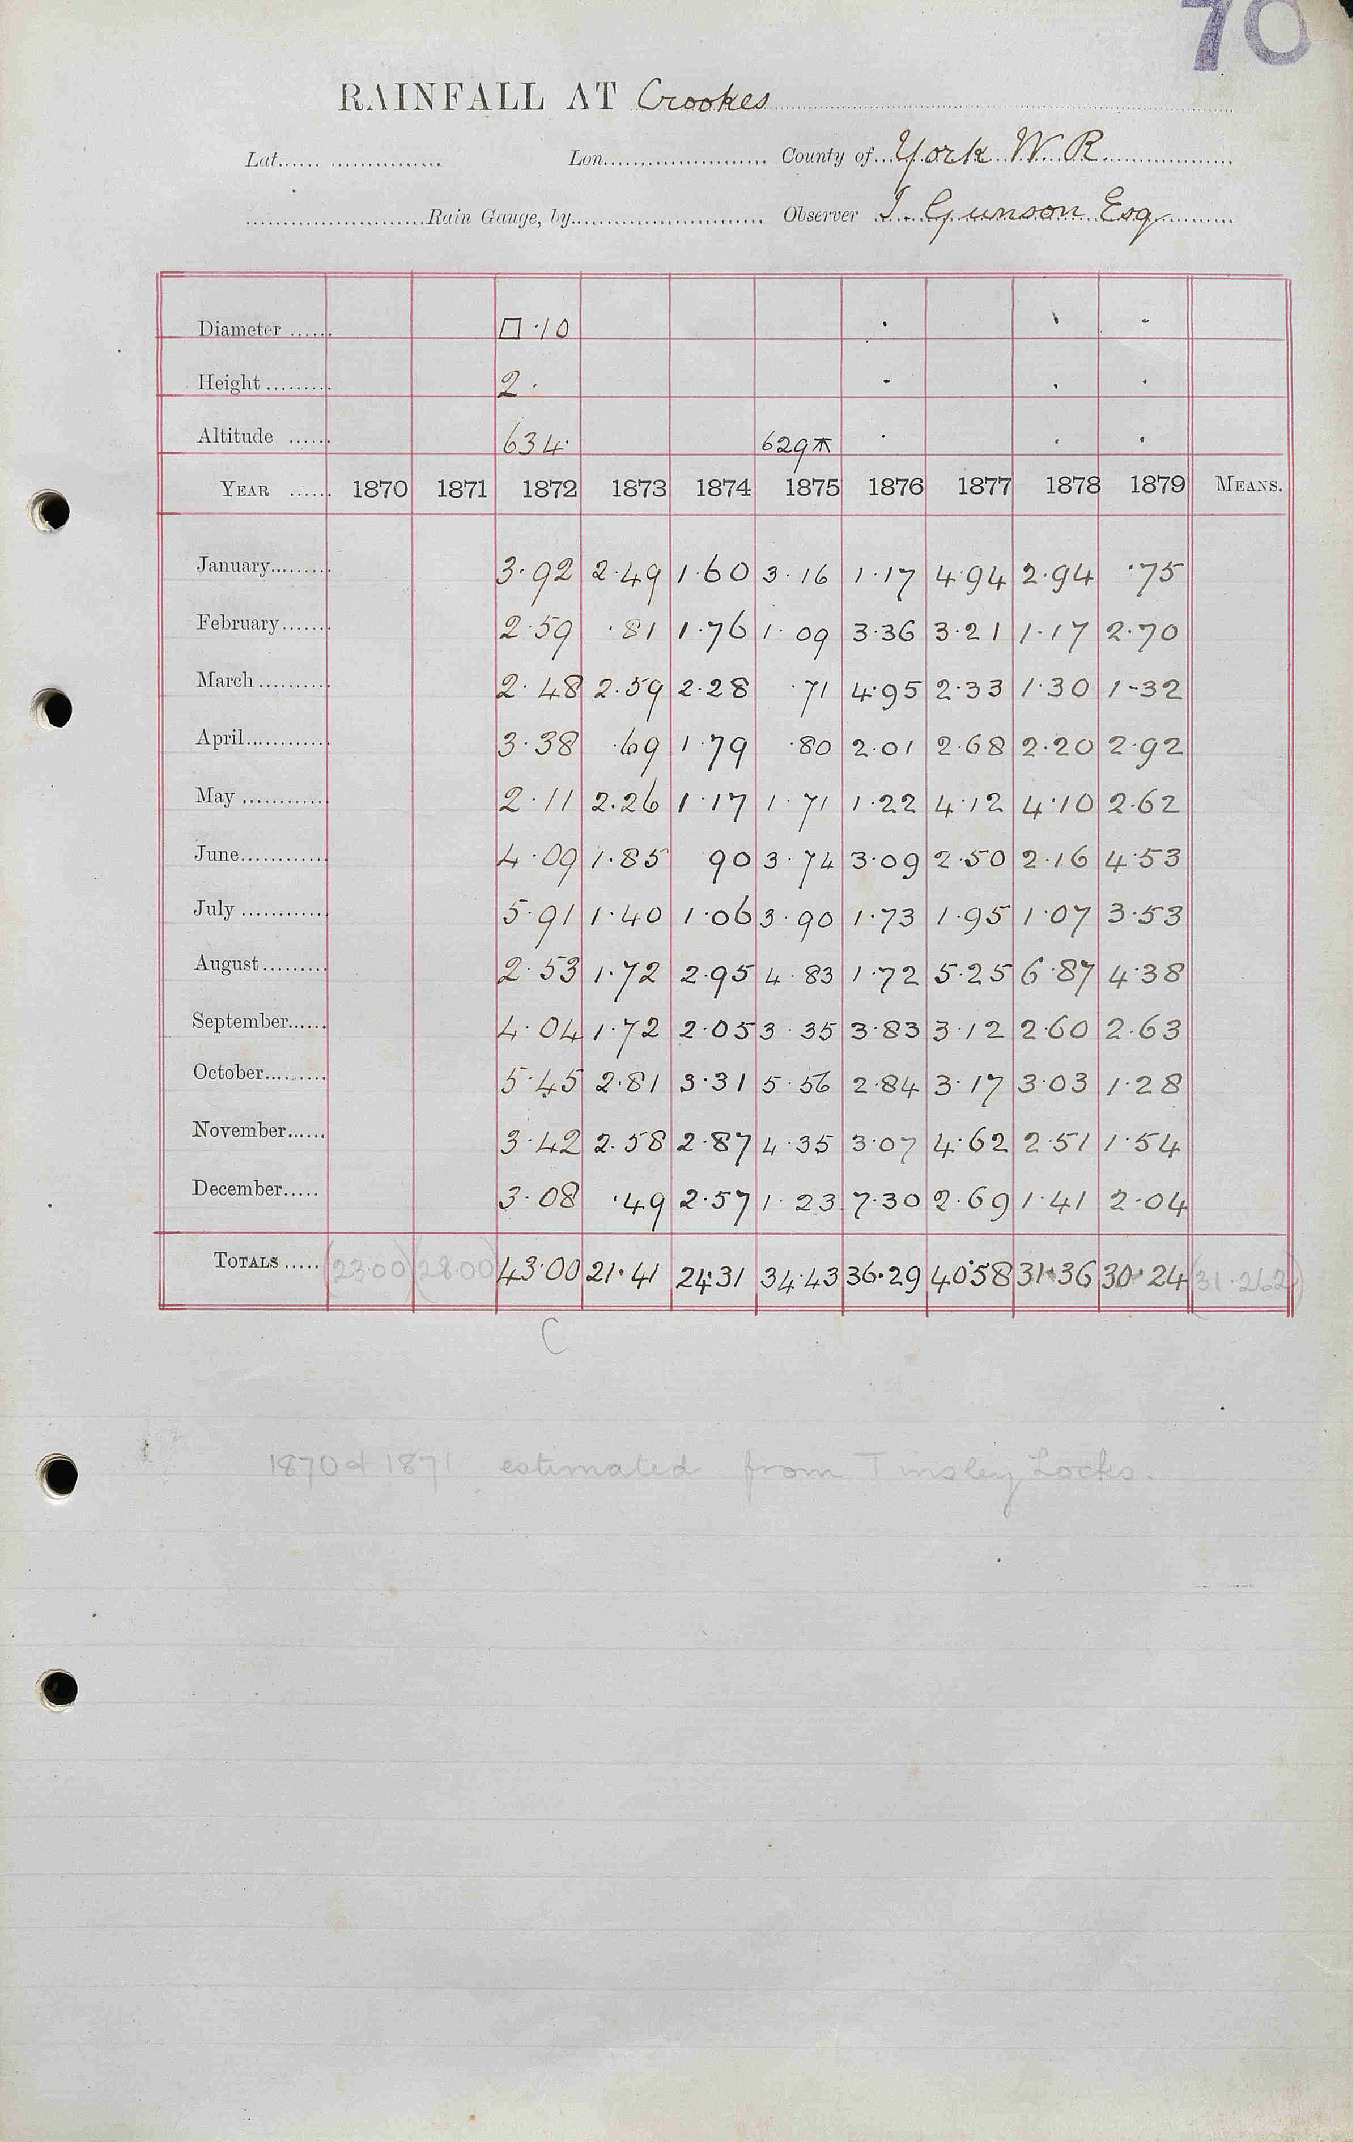 70
RAINFALL AT Crookes
Lat. Lon. County of York W R
Rain Gauge, by Observer I. Gunson Esq
Diameter □ ·10
Height 2·
Altitude 634 629
YEAR 1870 1871 1872 1873 1874 1875 1876 1877 1878 1879 MEANS.
January 3·92 2·49 1·60 3·16 1·17 4·94 2·94 ·75
February 2·59 ·81 1·76 1·09 3·36 3·21 1·17 2·70
March 2·48 2·59 2·28 ·71 4·95 2·33 1·30 1·32
April 3·38 ·69 1·79 ·80 2·01 2·68 2·20 2·92
May 2·11 2·26 1·17 1·71 1·22 4·12 4·10 2·62
June 4·09 1·85 90 3·74 3·09 2·50 2·16 4·53
July 5·91 1·40 1·06 3·90 1·73 1·95 1·07 3·53
August 2·53 1·72 2·95 4·83 1·72 5·25 6·87 4·38
September 4·04 1·72 2·05 3·35 3·83 3·12 2·60 2·63
October 5·45 2·81 3·31 5·56 2·84 3·17 3·03 1·28
November 3·42 2·58 2·87 4·35 3·07 4·62 2·51 1·54
December 3·08 ·49 2·57 1·23 7·30 2·69 1·41 2·04
TOTALS (23·00) (28·00) 43·00 21·41 24·31 34·43 36·29 40·58 31·36 30·24 (31·262)
C
1870 & 1871 estimated from Tinsley Locks.